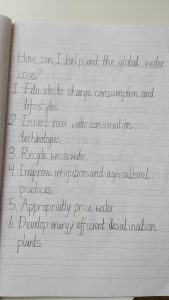 How can I help end the global water
crisis?
1. Educate to change consumption and
lifestyles.
2. Invent new water conservation
technologies.
3. Recycle wastewater
4. Improve irrigation and agricultural
practices.
5. Appropriatly price water
6. Develop energy efficient desalination
plants.